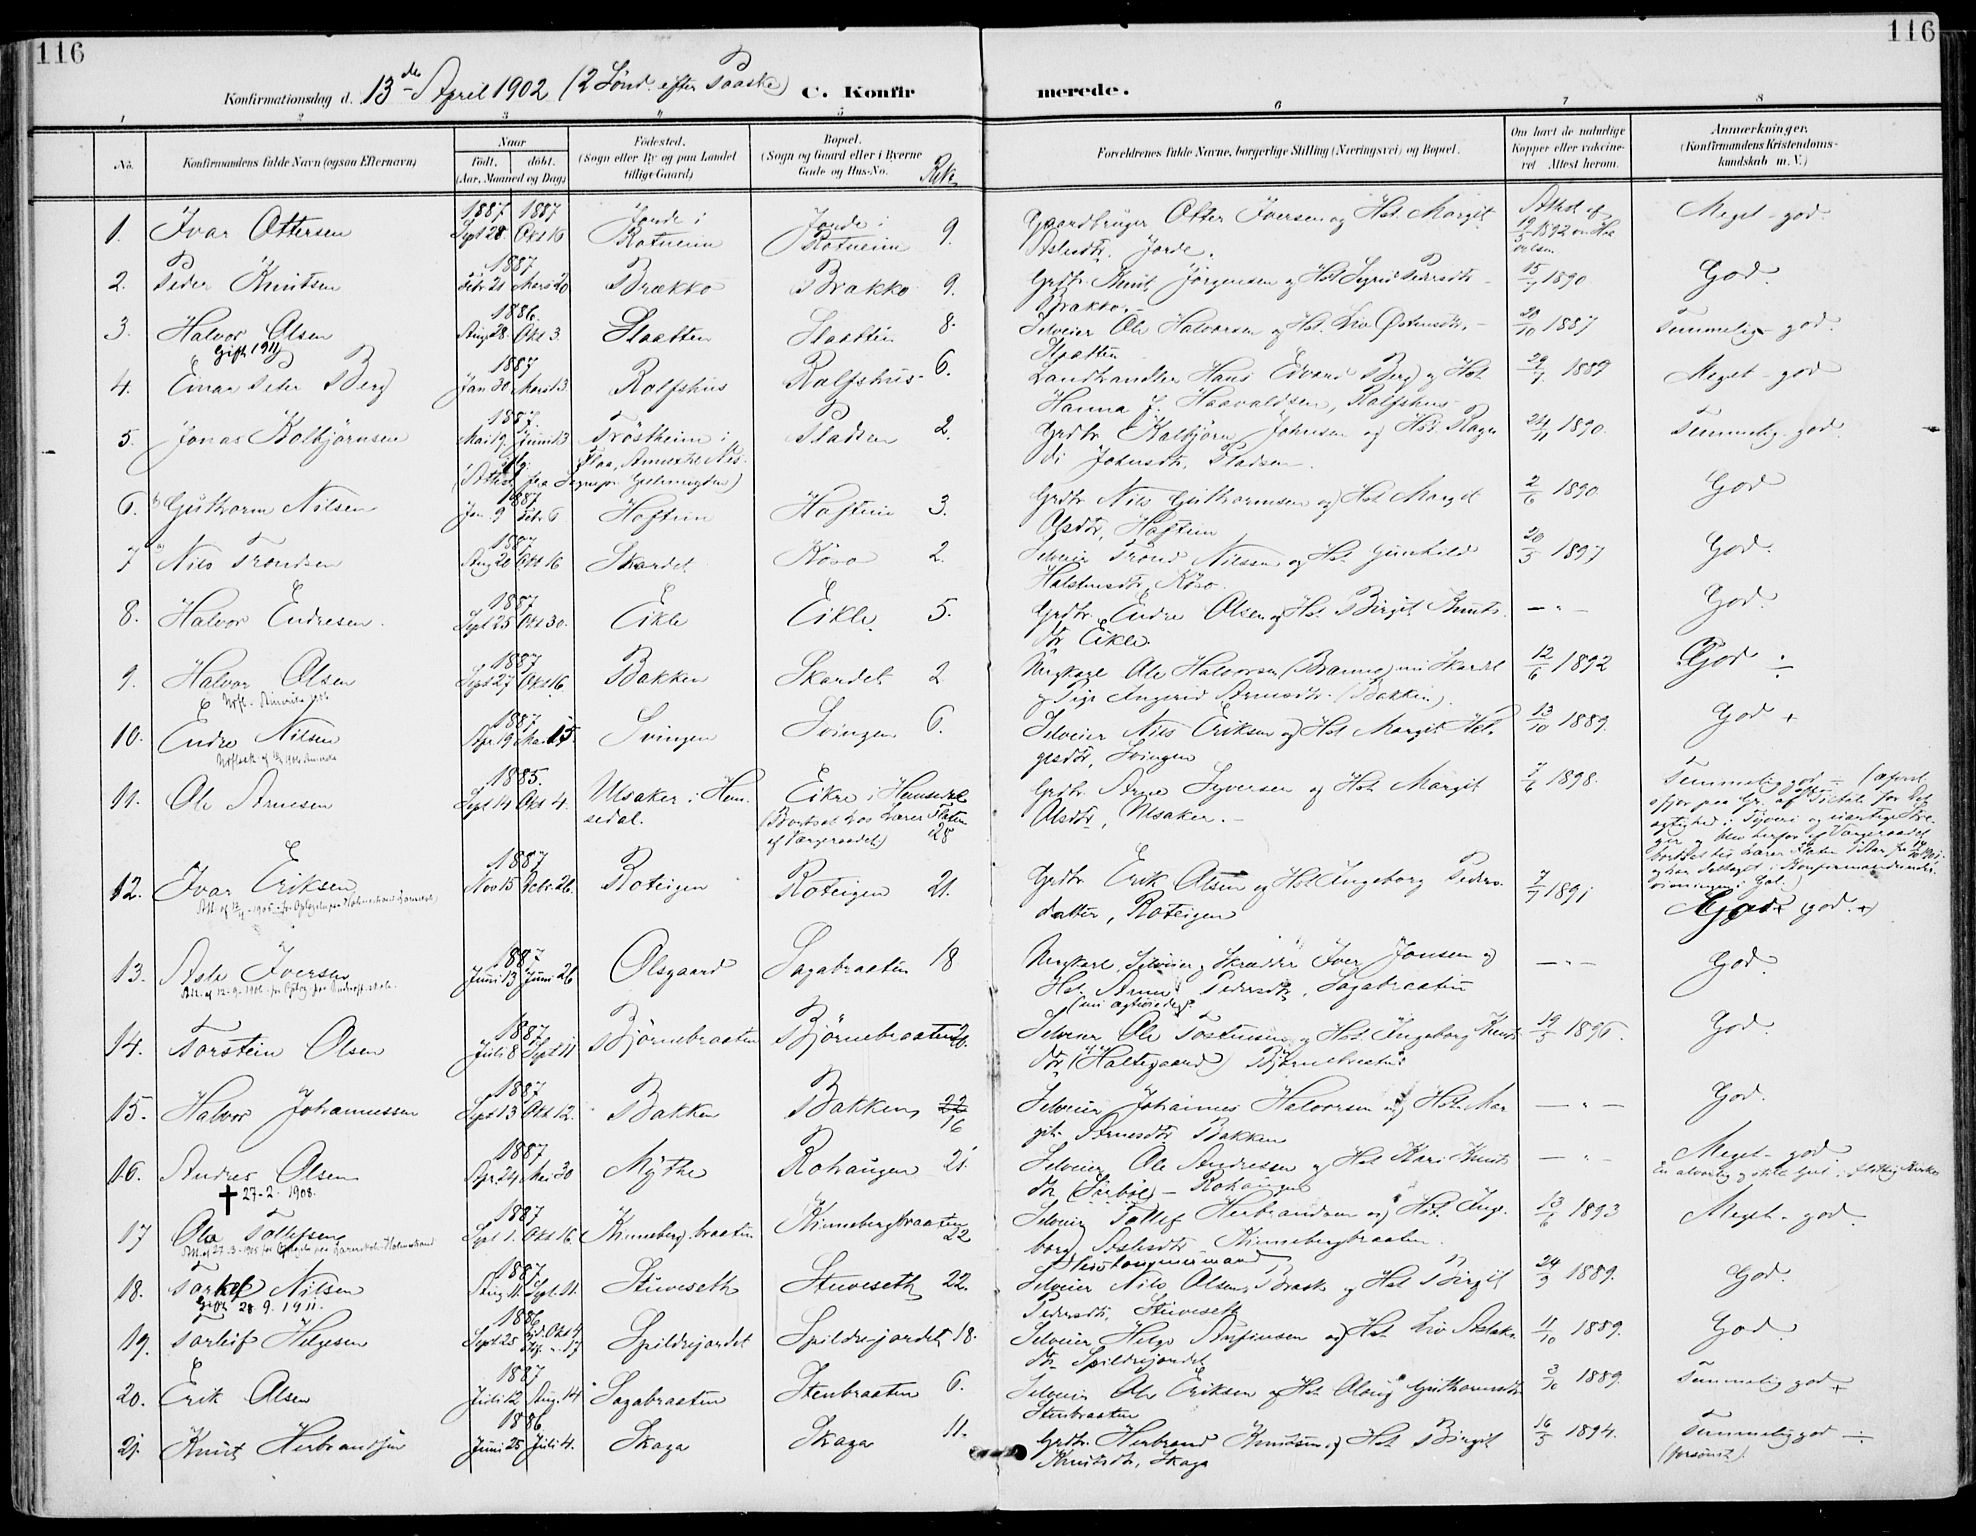 116
116
Konfirmationsdag d. 13de April 1902 (2 Sønd. efter Paaske) C. Konfirmerede.
1 2 3 4 5 6 7 8
No. Konfirmandens fulde Navn (ogsaa Efternavn) Naar født. døbt. (Aar, Maaned og Dag) Fødested. (Sogn eller By og paa Landet tillige Gaard) Bopæl. (Sogn og Gaard eller i Byerne Gade og Hus-No.) Forældrenes fulde Navne, borgerlige Stilling (Næringsvei) og Bopæl. Om havt de naturlige Kopper eller vaccineret Attest herom. Anmærkninger. (Konfirmandens Kristendomskundskab m. V.)
1. Ivar Ottersen 1887 Sept 28 1887 Okt 16 Jorde i Rotneim Jorde i Rotneim 9. Gaardbruger Otter Iversen og Hst. Margit Aslesdtr. Jorde. Attest af 19/3 1892 Meget god
2. Peder Knutsen 1887 Febr 21 Mars 20 Brækko Brakko 9. Grdbr. Knut Jörgensen og Hst. Sigrid Pedersdtr. Brakko. 15/7 1890 God.
3. Halvor Olsen 1886. Aug 28. Okt 3. Slaatten Slaatten 8. Selveier Ole Halvorsen og Hst. Liv Østensdtr. Slaatten 20/10 1887 Temmelig god.
Gift 1911
4. Einar Peter Berg 1887 Jan 30 Mars 13 Rolfshus Rolfshus 6. Landhandler Hans Edvard Berg og Hst. Hanna J. Haavaldsen, Rolfshus 29/7 1889 Meget god
5. Jonas Kolbjörnsen 1887. Mai 19. Juni 13 Tröstheim i Flaa, Annex til Nes. Pladsen 2. Grdbr. Kolbjörn Johnsen og Hst. Ragndi Johnsdtr. Pladsen. 24/11 1890. Temmelig god.
6. Guthorm Nilsen 1887 Jan. 9 Febr 6 Hoftun Hoftun 3. Grdbr Nils Guthormsen og Hst. Margit Olsdtr, Hoftun 2/6 1890. God
7 Nils Trondsen 1887 Aug 20 Okt 16 Skardet Köso 2. Selveier Trond Nilsen og Hst. Gunhild Halstensdtr, Köso. 20/5 1897 God.
8. Halvor Endresen. 1887 Sept 25 Okt 30. Eikle Eikle 5. Grdbr. Endre Olsen og Hst. Birgit Knutsdtr Eikle. — " — God.
9. Halvor Olsen 1887 Sept 27 Okt 16. Bakken Skardet 2 Ungkarl Ole Halvorsen (Bramo) nu Skardet og Pige Ingerid Arnesdtr. (Bakken). 12/6 1892 God ÷
10. Endre Nilsen 1887. Apr. 19 Mai 15 Svingen Svingen 6. Selveier Nils Eriksen og Hst. Margit Helgesdtr, Svingen 13/10 1889. God +
11. Ole Arnesen 1885. Sept 14 Okt 4. Ulsaker i Hemsedal. Eikre i Hemsedal (Bortsat hos Lærer Flaten af Værgeraadet) 28 Grdbr. Arne Syversen og Hst. Margit Olsdtr, Ulsaker. 7/6 1898. Temmelig god
12. Ivar Eriksen 1887 Nov 15 Febr. 26. Roteigen Roteigen 21. Grdbr. Erik Olsen og Hst. Ingeborg Pedersdatter, Roteigen 7/7 1891 God
13. Asle Iversen 1887 Juni 13 Juni 26 Olsgaard Sagabraaten 18 Ungkarl, Selveier, Skrædder Iver Jonsen og Hst. Anne Pedersdtr, Sagabraaten — " — God.
14. Torstein Olsen 1887 Juli 8 Sept 11. Björnebraaten Björnebraaten Selveier Ole Tostensen og Hst. Ingeborg Knutsdtr (Haltegaard) Björnebraaten 19/5 1896. God.
15. Halvor Johannessen 1887 Sept 13 Okt 12. Bakken Bakken 22 16 Selveier Johannes Halvorsen og Hst. Margit Arnesdtr Bakken — " — God.
16. Andres Olsen 1887 Apr. 24 Mai 30 Mythe Rohaugen 21. Selveier Ole Andressen og Hst. Kari Knutsdtr (Sørbøl) – Rohaugen — " — Meget god
† 27-2. 1908.
17 Ola Tollefsen 1887 Sept 1. Okt 16. Kinneberg.braaten Kinnebergbraaten 22 Selveier Tollef Herbrandsen og Hst. Ingeborg Aslesdtr Kinnebergbraaten. 13/6 1893 Meget god.
18. Torkel Nilsen 1887 Aug 11. Sept. 11. Stuveseth Stuveseth 22. Selveier Nils Olsen, Brask og Hst. Birgit Pedersdtr, Stuveseth 24/9 1889. God.
Gift 28 9. 1911.
19. Torleif Helgesen 1886 Sept 25 Spildrejordet Spildrejordet 18. Selveier Helge Anfinsen og Hst. Liv Aslaksdtr Spildrejordet 11/10 1889. God.
20. Erik Olsen 1887 Juli 12 Aug. 14 Sagabraaten Stenbraaten 6. Selveier Ole Eriksen og Hst. Olaug Guthormsdtr Stenbraaten 3/10 1889. Temmelig god +
21. Knut Herbrandsen 1886. Juni 25 Juli 4. Skaga Skaga 11. Grdbr. Herbrand Knutsen og Hst. Birgit Knutsdtr, Skaga 16/5 1894. Temmelig god ÷